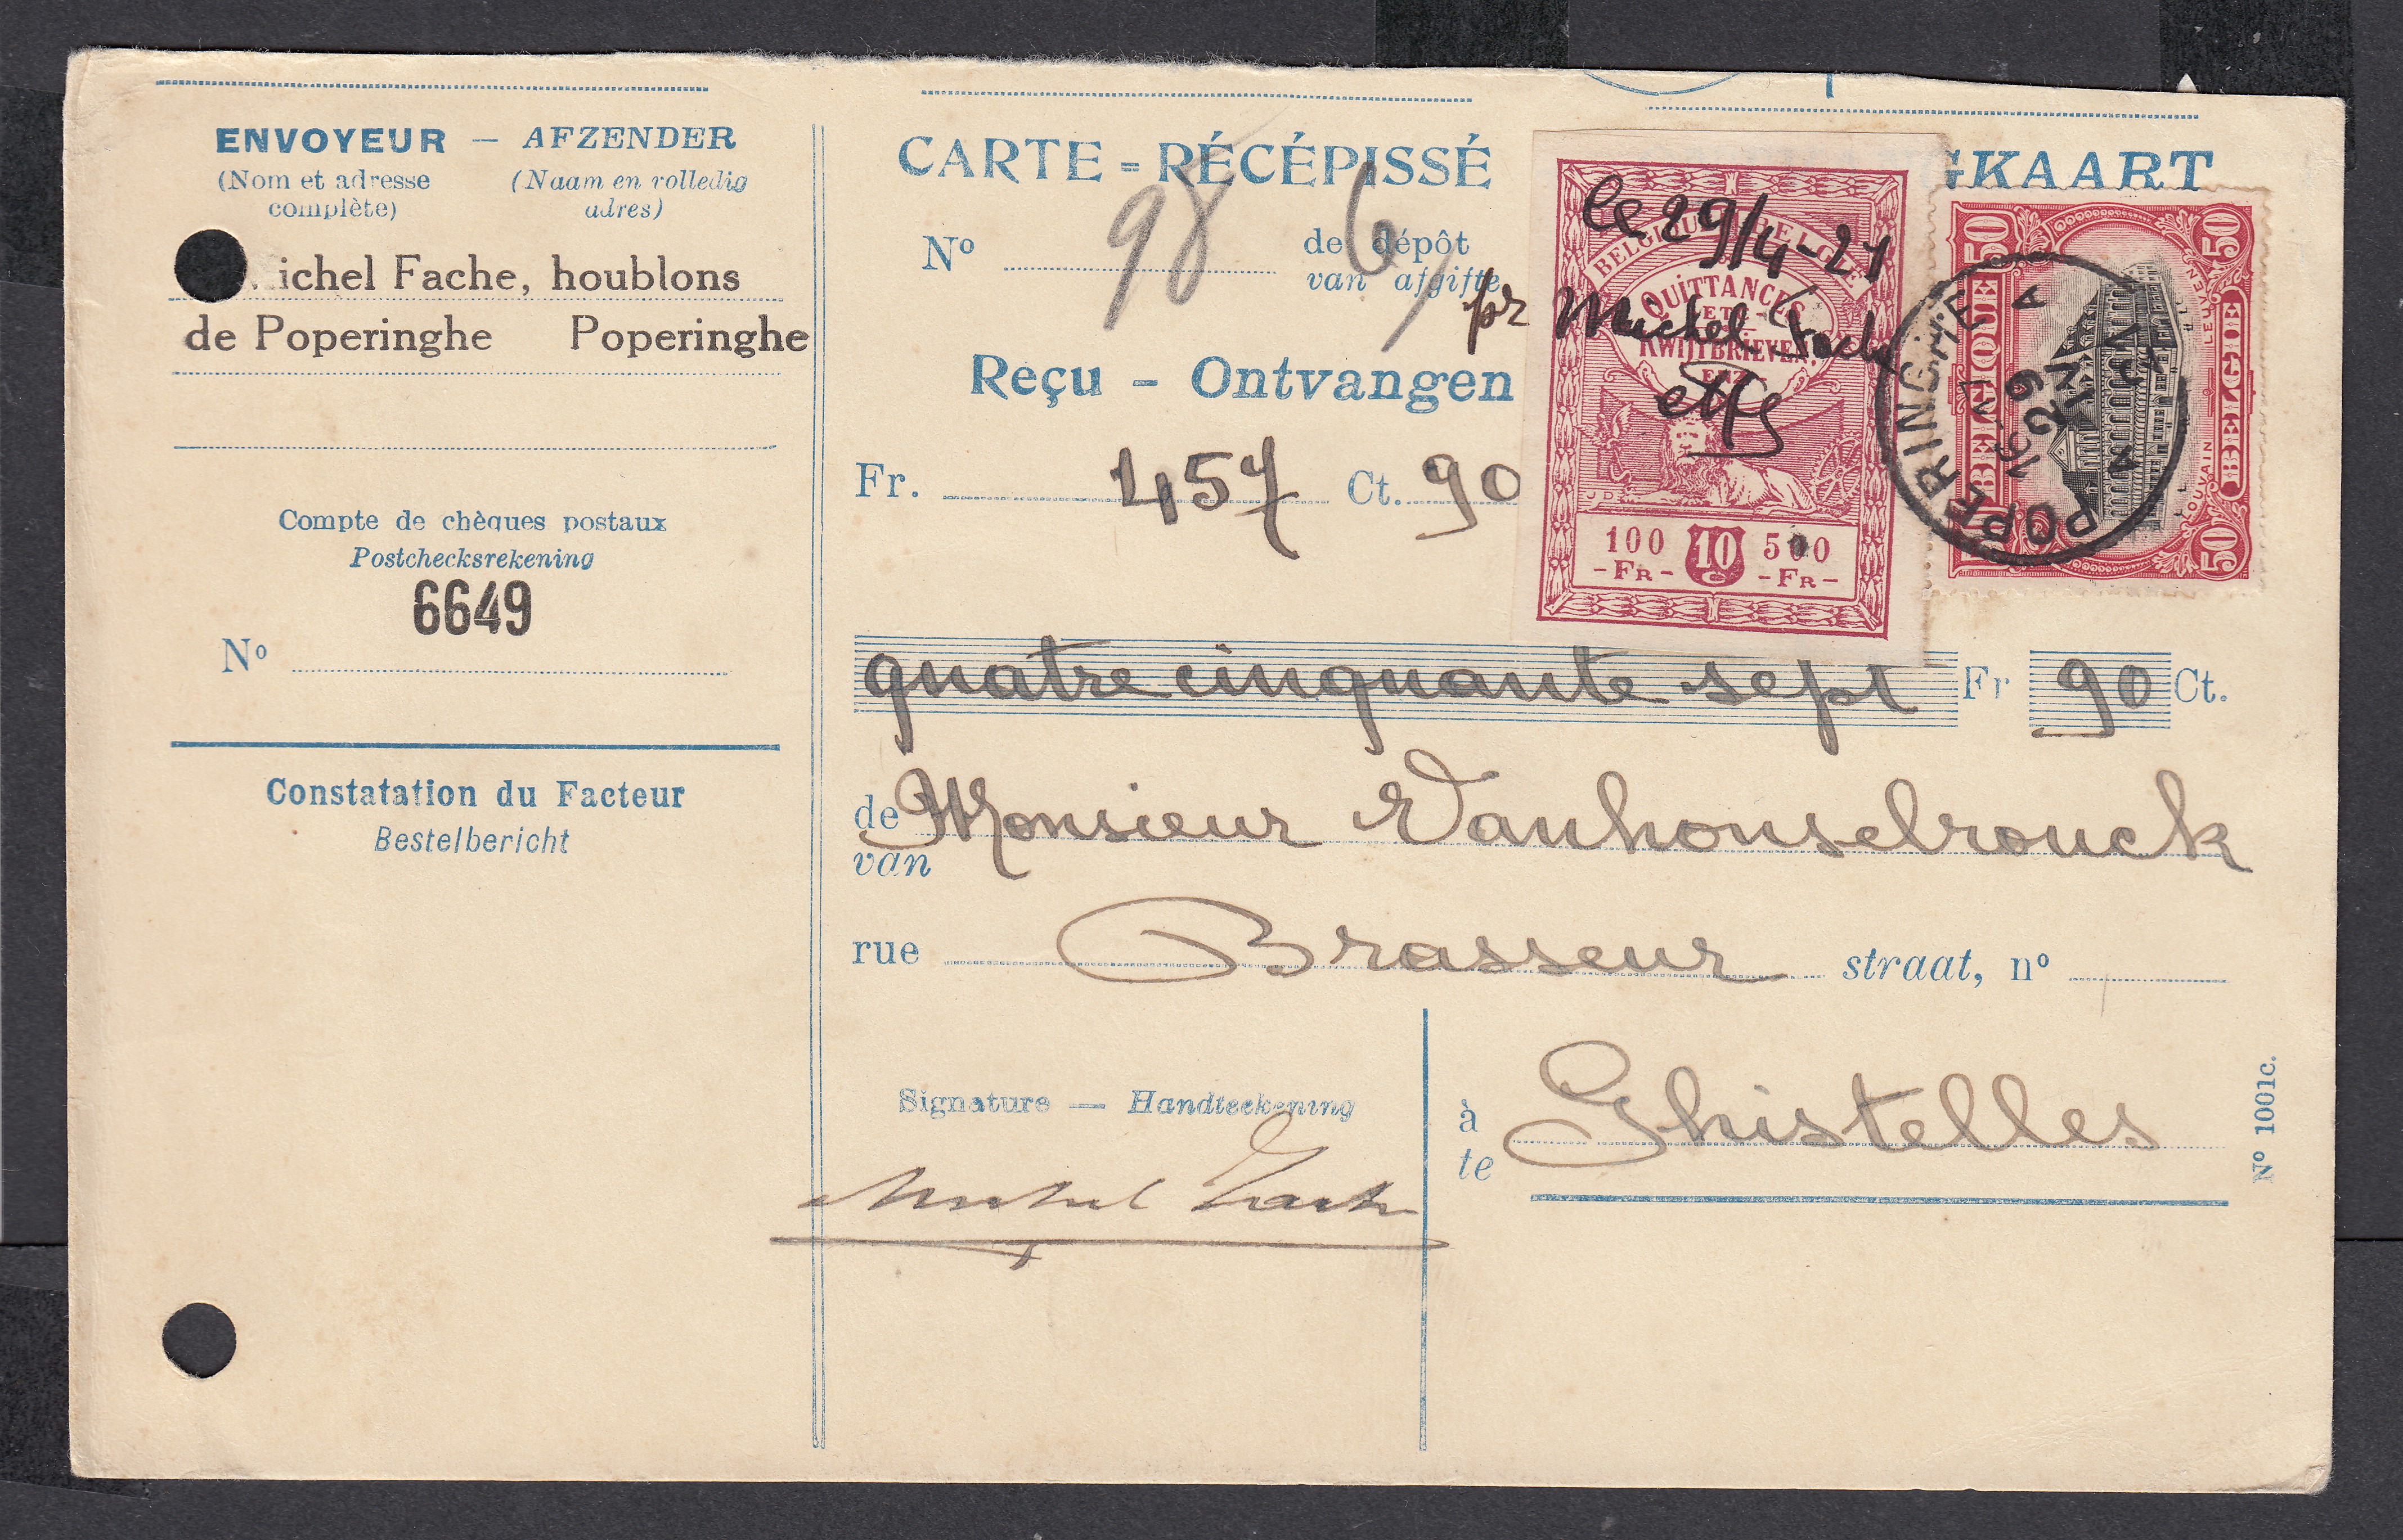 ENVOYEUR — AFZENDER
(Nom et adresse complète) (Naam en volledig adres)
ichel Fache, houblons
de Poperinghe Poperinghe
Compte de chèques postaux
Postchecksrekening
6649
Nº
Constatation du Facteur
Bestelbericht
CARTE = RÉCÉPISSÉ GKAART
Nº 98 de dépôt
van afgifte
Reçu - Ontvangen
Fr. 457 Ct. 90
pr
le 29/4-21
Michel Fache
BELGIQUE BELGIE
QUITTANCES
ETC
KWIJTBRIEVEN,
ENZ
J D
100 10 500
-FR- C -FR-
50 BELGIQUE 50
LOUVAIN LEUVEN
50 BELGIE 50
POPERINGHE
A
16-17
29
IV
quatre cinquante sept Fr 90 Ct.
de Monsieur Vanhonsebrouck
van
rue Brasseur straat, nº
Signature — Handteekening
Michel Fache
à Ghistelles
te
Nº 1001c.